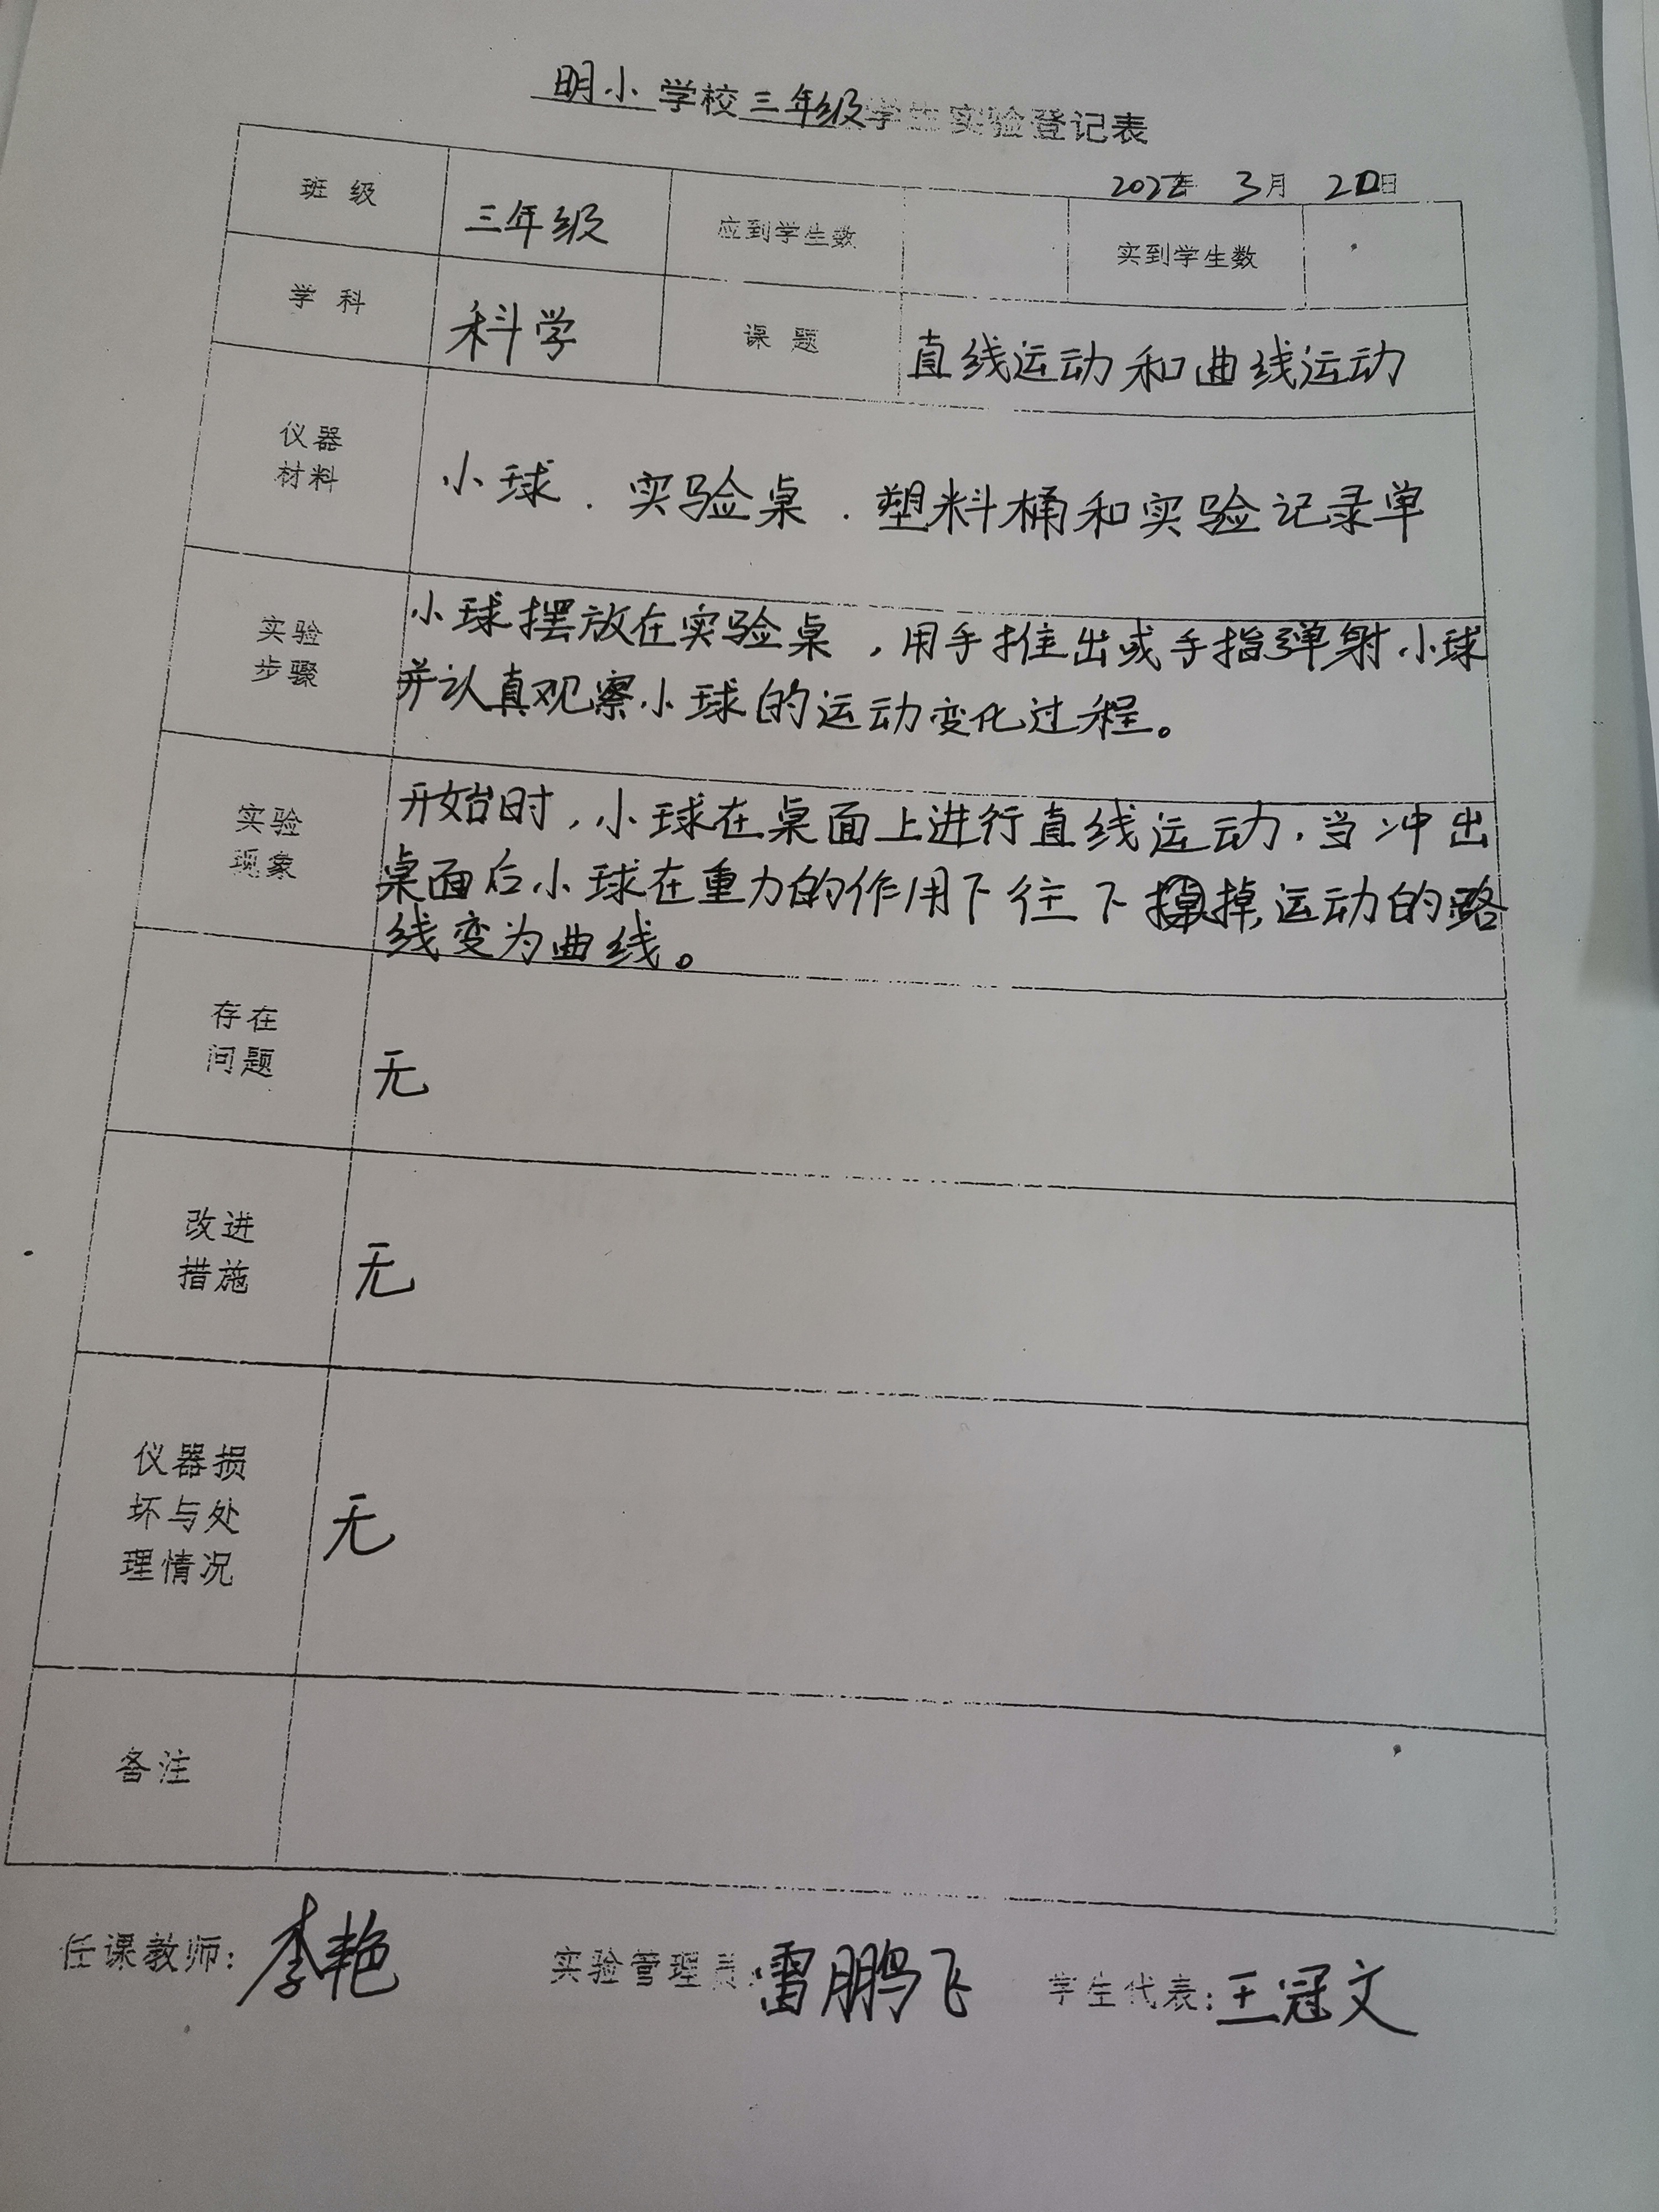 明小学校三年级学生实验登记表
2022年 3月 2日
班 级 三年级 应到学生数 实到学生数
学 科 科学 课 题 直线运动和曲线运动
仪器
材料
小球.实验桌.塑料桶和实验记录单
实验
步骤
小球摆放在实验桌，用手推出或手指弹射小球
并认真观察小球的运动变化过程。
实验
现象
开始时，小球在桌面上进行直线运动.当冲出
桌面后小球在重力的作用下往下掉,运动的路
线变为曲线。
存在
问题
无
改进
措施
无
仪器损
坏与处
理情况
无
备注
任课教师：李艳 实验管理员：雷鹏飞 学生代表：王冠文